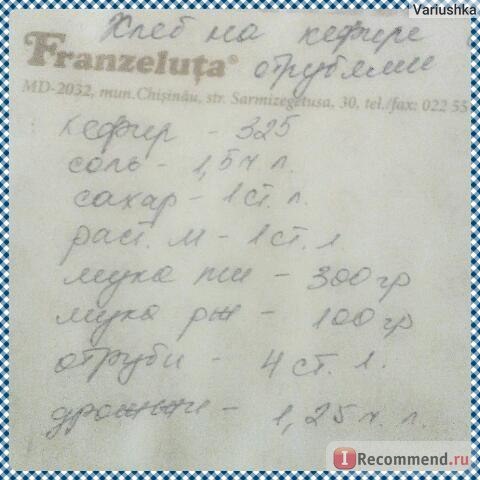 Variushka
Хлеб на кефире с
отрубями
Franzeluța®
MD-2032, mun. Chișinău, str. Sarmizegetusa, 30, tel./fax: 022 55
кефир - 325
соль - 1,5 ч л.
сахар - 1 ст. л.
раст. м - 1 ст. л.
мука пш - 300 гр
мука рж - 100 гр
отруби - 4 ст. л.
дрожжи - 1,25 ч. л.
I Recommend.ru